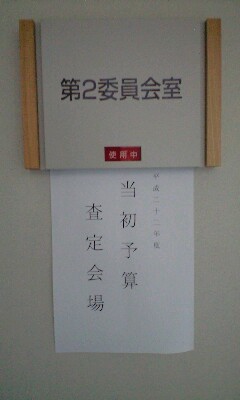 第2委員会室
使用中
平成二十二年度
当初予算
査定会場